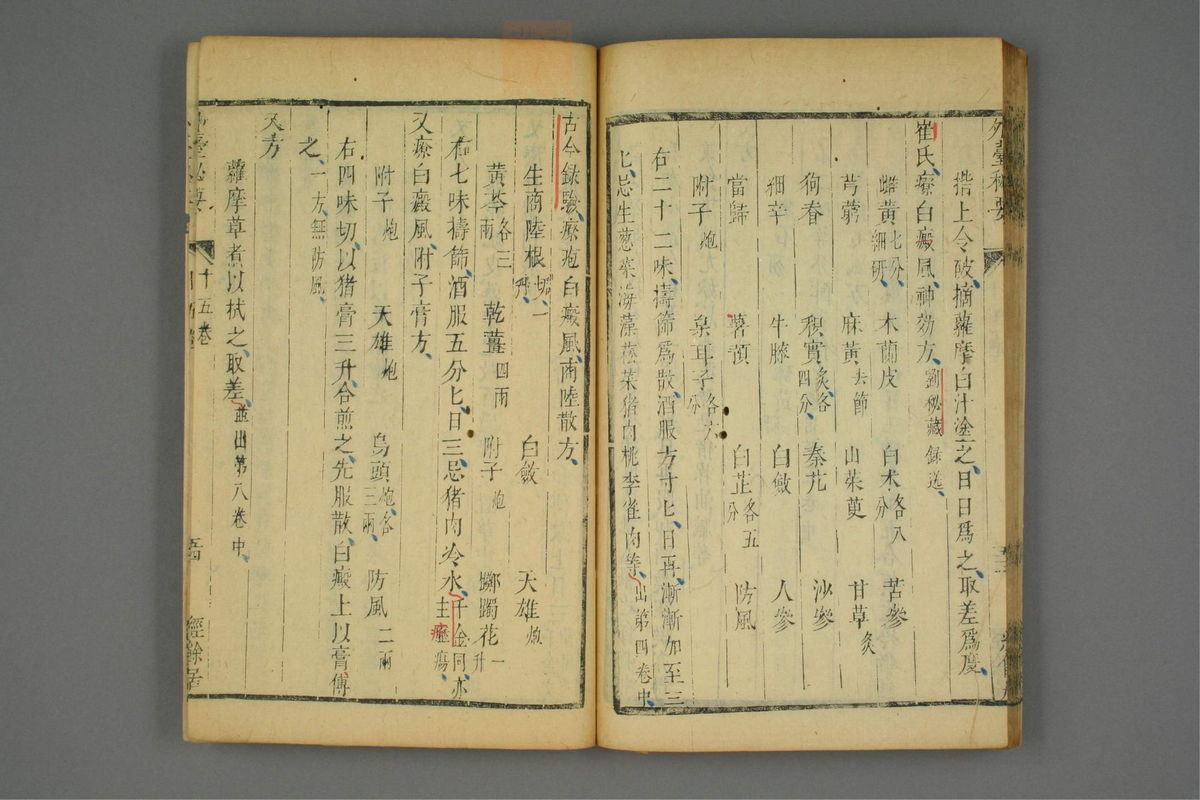 外臺秘要
揩上令破摘蘿摩白汁塗之日日為之取差為度
崔氏療白癜風神効方劉秘藏錄送
雄黃七分細研 木蘭皮 白朮各八分 苦參
芎藭 麻黃去節 山茱萸 甘草炙
狗脊 枳實炙各四分 秦艽 沙參
細辛 牛膝 白斂 人參
當歸 薯蕷 白芷各五分 防風
附子炮 枲耳子各六分
右二十二味擣篩為散酒服方寸匕日再漸漸加至三
匕忌生葱菜海藻菘菜猪肉桃李雀肉等出第四卷中
古今錄驗療疱白癜風商陸散方
生商陸根切一升 白斂 天雄炮
黃芩各三兩 乾薑四兩 附子炮 躑躅花一升
右七味擣篩酒服五分匕日三忌猪肉冷水千金同亦主癧瘍
又療白癜風附子膏方
附子炮 天雄炮 烏頭炮各三兩 防風二兩
右四味切以猪膏三升合煎之先服散白癜上以膏傅
之一方無防風
又方
蘿摩草煮以拭之取差並出第八卷中
外臺秘要
十五卷
經餘居